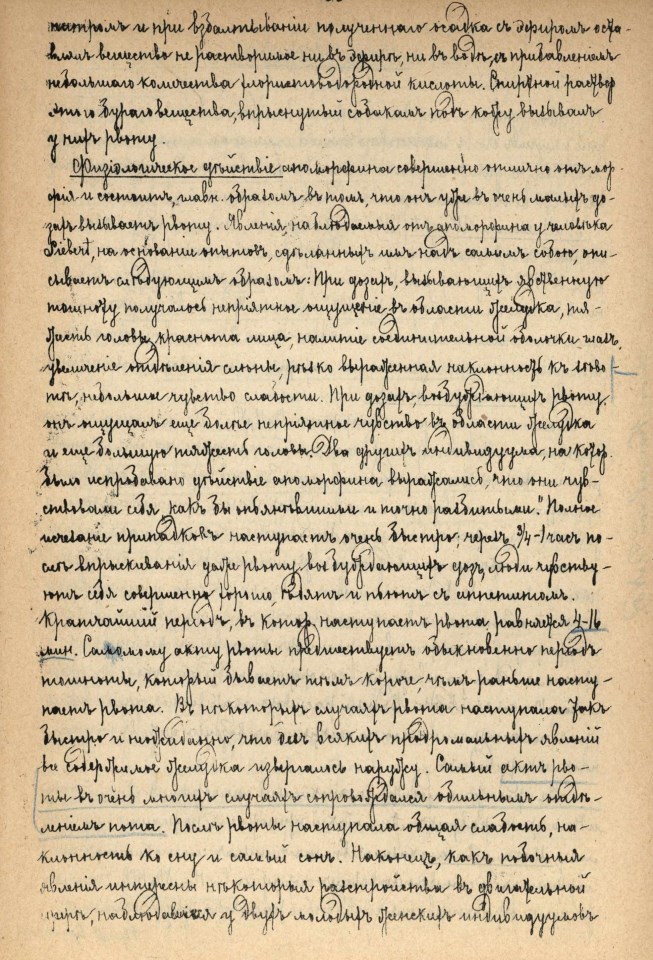 натромъ и при взбалтываніи полученнаго осадка съ эфиромъ оста-
вляя вещество не растворимое ни въ эфирѣ, ни въ водѣ, съ прибавленіемъ
небольшаго количества хлористоводородной кислоты. Спиртной раствор
этого бураго вещества, впрыснутый собакамъ подъ кожу вызывалъ
у нихъ рвоту.
Физіологическое дѣйствіе апоморфина совершенно отлично отъ мор-
фія и состоитъ, главн. образомъ въ томъ, что онъ уже въ очень малыхъ до-
захъ вызываетъ рвоту. Явленія, наблюдаемыя отъ апоморфина у человѣка
Siebert, на основаніи опытовъ, сдѣланныхъ имъ надъ самимъ собою, опи-
сываетъ слѣдующимъ образомъ: При дозахъ, вызывающихъ явственную
тошноту получалось непріятное ощущеніе въ области желудка, тя-
жесть головы, краснота лица, налитіе соединительной оболочки глазъ,
увеличеніе отдѣленія слюны, рѣзко выраженная наклонность къ зѣво-
тѣ, небольшое чувство слабости. При дозахъ, возбуждающихъ рвоту,
онъ ощущалъ еще болѣе непріятное чувство въ области желудка
и еще большую тяжесть головы. Два другихъ индивидуума, на котор.
было испробовано дѣйствіе апоморфина выражались, что они чув-
ствовали себя "какъ бы опьянѣвшими и точно разбитыми." Полное
исчезаніе припадковъ наступаетъ очень быстро; черезъ 3/4-1 часъ по-
слѣ впрыскиванія даже рвоту возбуждающихъ дозъ, люди чувству-
ютъ себя совершенно хорошо, ѣдятъ и пьютъ съ аппетитомъ.
Кратчайшій періодъ, въ котор. наступаетъ рвота равняется 4-16
мин. Самому акту рвоты предшествуетъ обыкновенно періодъ
тошноты, который бываетъ тѣмъ короче, чѣмъ раньше насту-
паетъ рвота. Въ нѣкоторыхъ случаяхъ рвота наступала такъ
быстро и неожиданно, что безъ всякихъ продромальныхъ явленій
все содержимое желудка извергалось наружу. Самый актъ рво-
ты въ очень многихъ случаяхъ сопровождался обильнымъ отдѣ-
леніемъ пота. Послѣ рвоты наступала общая слабость, на-
клонность ко сну и самый сонъ. Наконецъ, какъ побочныя
явленія интересны нѣкоторыя разстройства въ двигательной
сферѣ, наблюдавшіяся у двухъ молодыхъ женскихъ индивидуумовъ